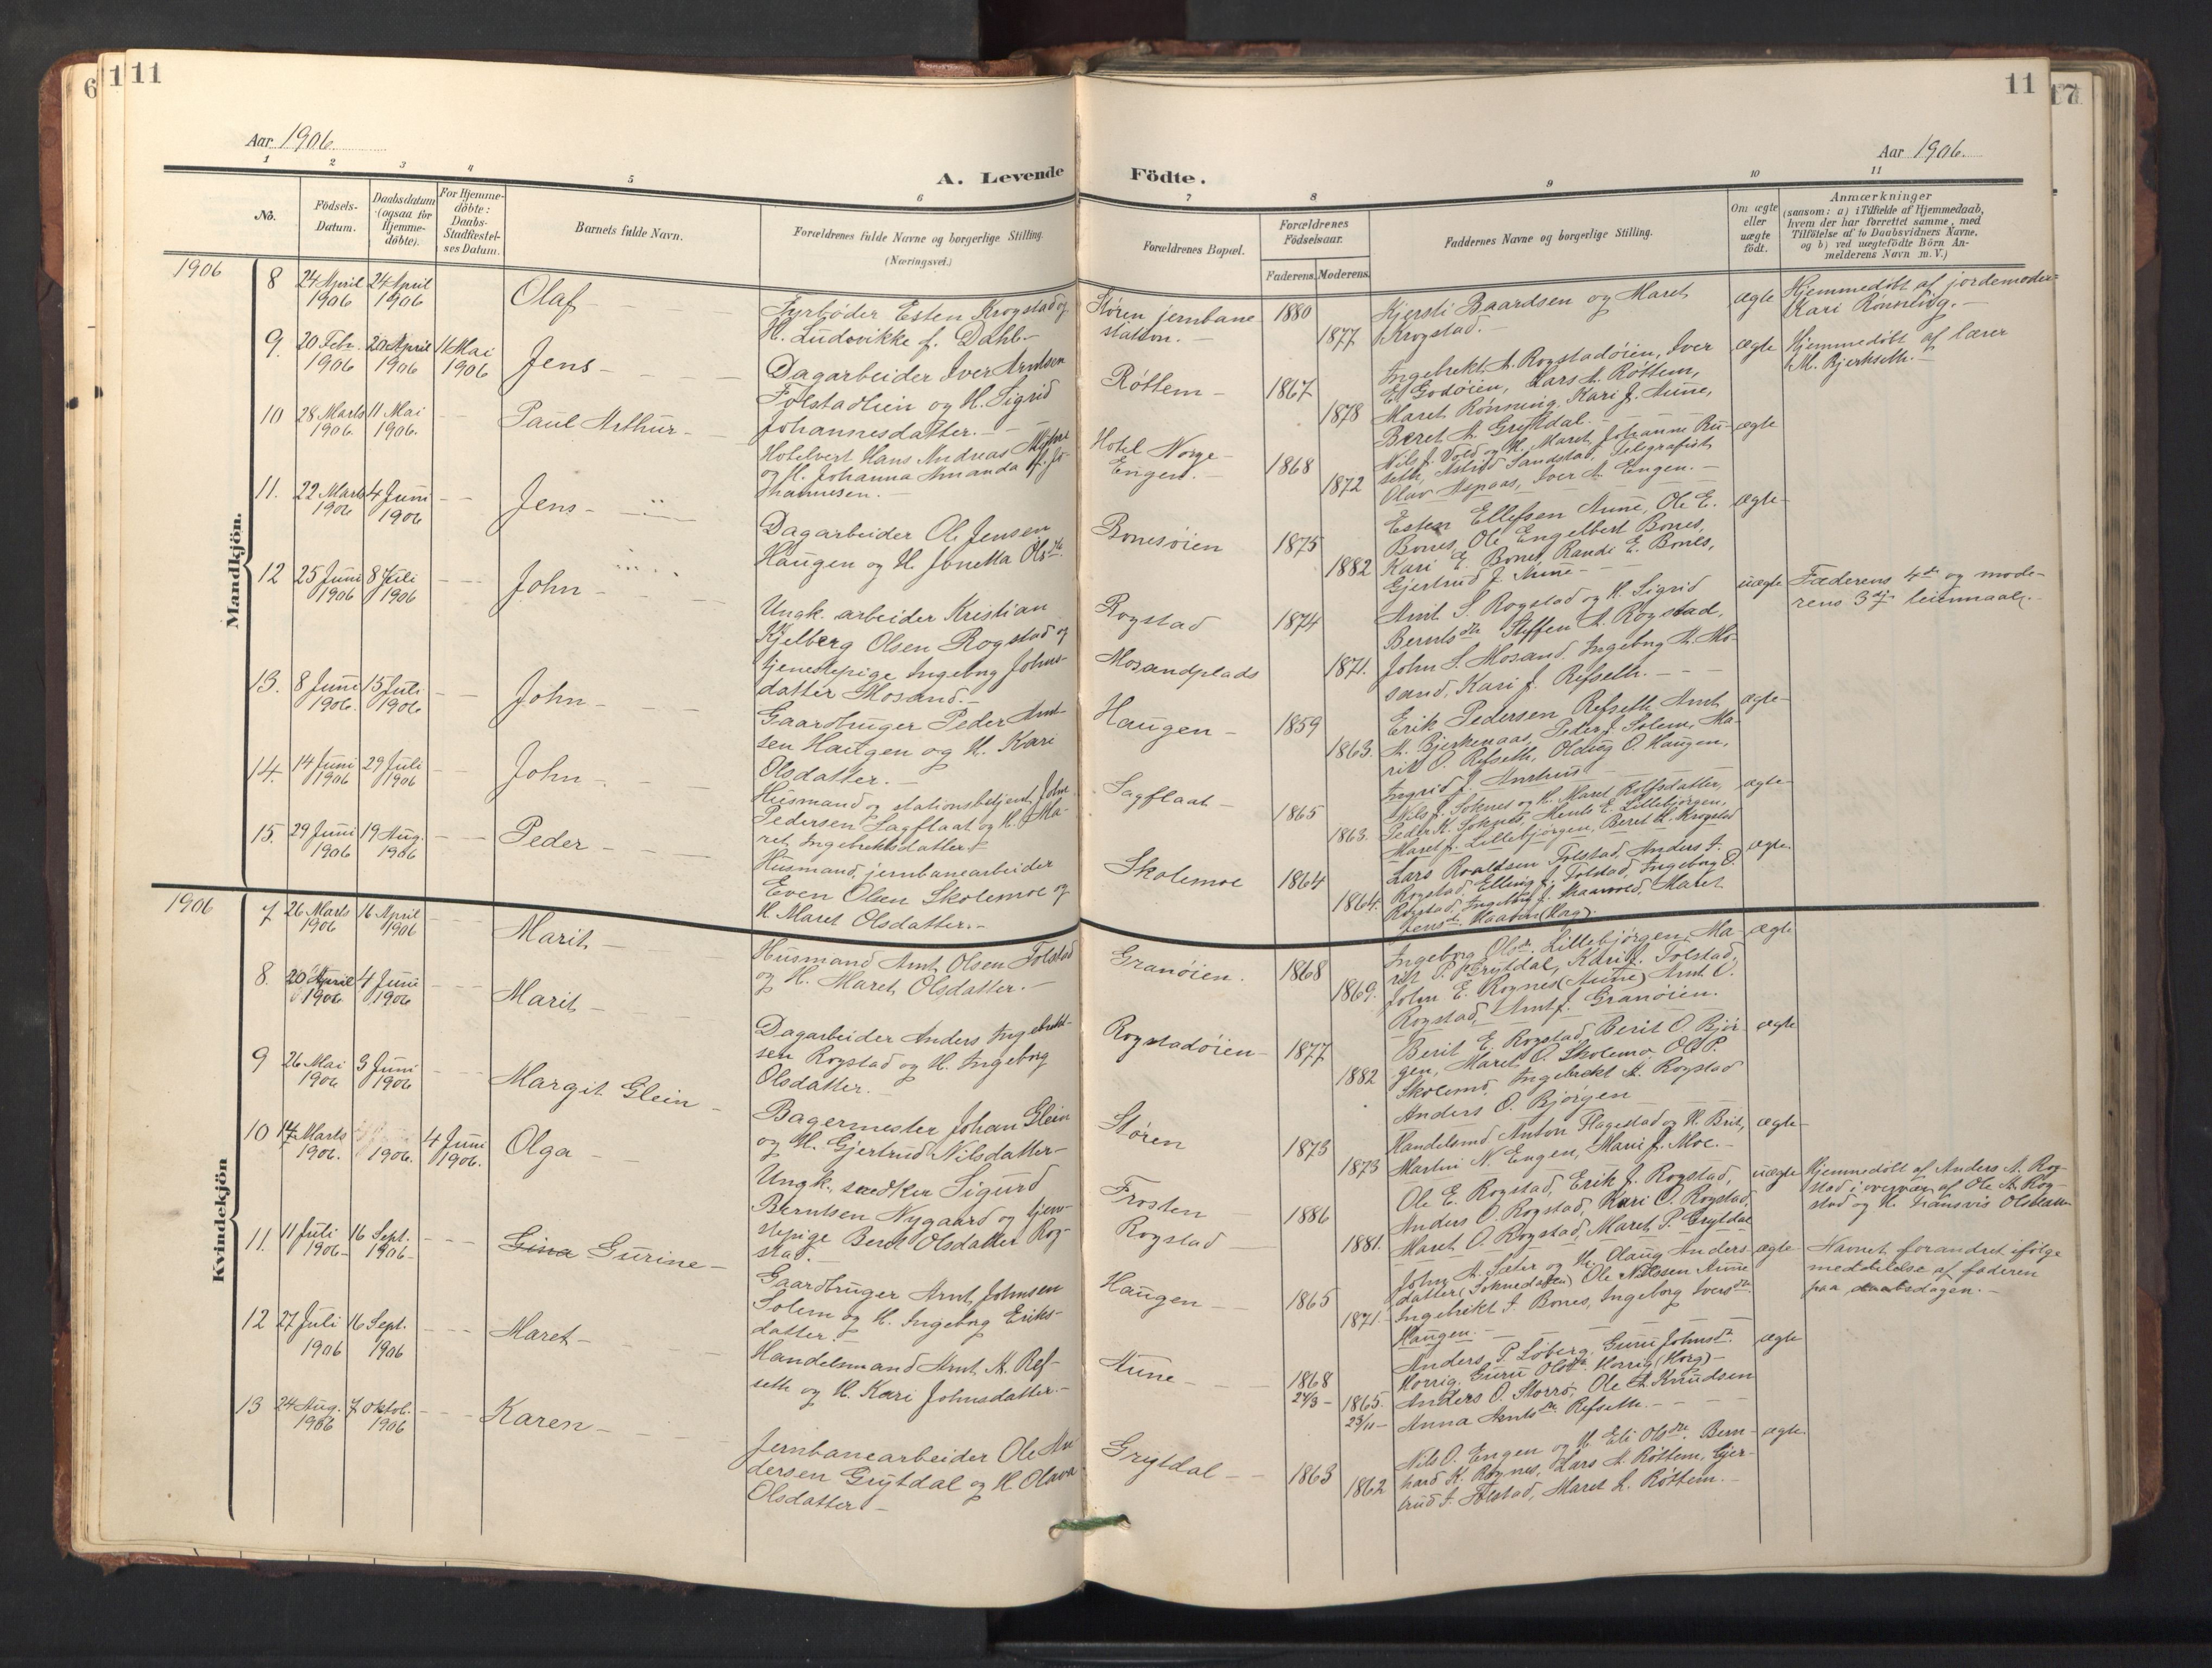 6
1
11
11
17
Aar 1906.
Aar 1906.
A. Levende Födte.
1
2
3
4
5
6
7
8
9
10
11
No.
Födsels-
Datum.
Daabsdatum
(ogsaa for
Hjemme-
döbte).
For Hjemme-
döbte:
Daabs-
Stadfæstel-
ses Datum.
Barnets fulde Navn.
Forældrenes fulde Navne og borgerlige Stilling.
(Næringsvei.)
Forældrenes Bopæl.
Forældrenes
Födselsaar.
Faderens.
Moderens.
Faddernes Navne og borgerlige Stilling.
Om ægte
eller
uægte
födt.
Anmærkninger
(saasom: a) i Tilfælde af Hjemmedaab,
hvem der har forrettet samme, med
Tilföielse af to Daabsvidners Navne,
og b) ved uægtefödte Börn An-
melderens Navn m. V.)
1906
Mandkjön.
8
24 April
1906
24 April
1906
Olaf
Fyrbøder Esten Krogstad og
H. Ludovikke f. Dahl.
Støren jernbane
station.
1880
1877
Kjersti Baardsen og Maret
Krogstad.
ægte
Hjemmedøbt af jordemoder
Kari Rønning.
9.
20 Febr.
1906
20 April
1906
11 Mai
1906
Jens
Dagarbeider Iver Arntsen
Folstadhein og H. Sigrid
Johannesdatter.
Røttem
1867
1878
Ingebrekt A. Rogstadøien, Iver
E. Godøien, Lars A. Røttem,
Maret Rønning, Kari J. Aune,
Beret A. Grytdal.
ægte
Hjemmedøbt af lærer
M. Bjerkseth.
10
28 Marts
1906.
11 Mai
1906.
Paul Arthur
Hotelvert Hans Andreas
og H. Johanna Amanda f. Jo-
hannesen.
Hotel Norge
Engen.
1868
1872
Nils J. Vold og H. Maret, Johanne Ru-
seth, Astrid Sandstad, Telegrafist
Olav Aspaas, Iver A. Engen.
ægte
11.
22 Marts
1906
4 Juni
1906
Jens
Dagarbeider Ole Jensen
Haugen og H. Jonetta Olsdtr.
Bonesøien
1875
1882
Esten Ellefsen Aune, Ole E.
Bones, Ole Engelbert Bones,
Kari E. Bones, Randi E. Bones,
Gjertrud J. Aune
ægte
12
25 Juni
1906
8 Juli
1906
John
Ungk. arbeider Kristian
Kjelberg Olsen Rogstad og
tjenestepige Ingeborg Johns-
datter Mosand.
Rogstad
Mosandplads
1874
1871.
Arnt S. Rogstad og H. Sigrid
Berntsdtr. Steffen A. Rogstad,
John S. Mosand, Ingeborg A. Mo-
sand, Kari J. Refseth.
uægte
Faderens 4de og mode-
rens 3die leiermaal.
13.
8 Juni
1906.
15 Juli
1906
John
Gaardbruger Peder Arnt-
sen Haugen og H. Kari
Olsdatter.
Haugen
1859
1863.
Erik Pedersen Refseth, Arnt
A. Bjerkenaas, Peder J. Solem, Ma-
rit O. Refseth, Oldug O. Haugen,
Ingrid J.
ægte
14.
14 Juni
1906
29 Juli
1906
John
Husmand og stationsbetjent John
Pedersen Sagflaat og H. Ma-
ret Ingebrektsdatter.
Sagflaat
1865
1863.
Nils J. Soknes og H. Maret Rolfsdatter,
Peder K. Soknes, E. Lillebjørgen,
Maret J. Lillebjørgen, Beret H. Krogstad
ægte
15.
29 Juni
1906
19 Aug.
1906
Peder
Husmand, jernbanearbeider
Even Olsen Skolemoe og
H. Maret Olsdatter.
Skolemoe
1864
1864.
Lars Roaldsen Folstad, Anders I.
Rogstad, Elling J. Folstad, Ingeborg O.
Rogstad, Ingeborg J. Maret
Jensdtr. (Horg).
ægte.
1906
Kvindekjön
7
26 Marts
1906
16 April
1906
Marit
Husmand Arnt Olsen Folstad
og H. Maret Olsdatter.
Granøien.
1868
1869.
Ingeborg Olsdtr. Lillebjørgen, Ma-
rit P. Grytdal, Kari J. Folstad,
John E. Rognes (Aune) Arnt O.
Rogstad, Arnt J. Granøien.
ægte
8.
20 April
1906
4 Juni
1906
Marit
Dagarbeider Anders Ingebrekt-
sen Rogstad og H. Ingeborg
Olsdatter.
Rogstadøien
1877
1882
Berit E. Rogstad, Berit O. Bjør-
gen, Maret O. Skolemo, Ole P.
Skolemo, Ingebrekt A. Rogstad
Anders O. Bjørgen
ægte
9
26 Mai
1906
3 Juni
1906
Margit Glein
Bagermester Johan Glein
og H. Gjertrud Nilsdatter
Støren
1873
1873
Handelsmd Anton Flagestad og H. Brit,
Martin N. Engen, Marie J. Moe.
ægte
10
14 Marts
1906.
1906.
4 Juni
1906.
Olga
Ungk., snedker Sigurd
Berntsen Nygaard og tjene-
stepige Beret Olsdatter Rog-
stad.
Frosten
Rogstad
1886
1881.
Ole E. Rogstad, Erik J. Rogstad,
Anders O. Rogstad, Kari O. Rogstad,
Maret O. Rogstad, Maret P. Grytdal
uægte
Hjemmedøbt af Anders A. Rog-
stad i overvær af Ole A. Rog-
stad og H.
11.
11 Juli
1906
16 Sept.
1906
Gina Gurine
Gaardbruger Arnt Johnsen
Solem og H. Ingeborg Eriks-
datter.
Haugen
1865
1871.
John A. Sæter og H. Olaug Anders-
datter (Soknedalen) Ole Nilssen Aune
Ingebrikt I. Bones, Ingeborg Iversdtr.
Haugen.
ægte
Navnet forandret ifølge
meddelelse af faderen
paa daabsdagen.
12
27 Juli
1906
16 Sept.
1906
Maret
Handelsmand Arnt A. Ref-
seth og H. Kari Johnsdatter.
Aune
1868
24/3
1865.
23/11
Anders P. Løberg, Guru Johnsdtr.
Horrig, Guru Olsdtr. Horrig (Horg)
Anders O. Storrø, Ole A. Knudsen
Anna Arntsdtr. Refseth.
ægte
13
24 Aug.
1906
7 Oktob.
1906
Karen
Jernbanearbeider Ole An-
dersen Grytdal og H. Olava
Olsdatter
Grytdal
1863
1862
Nils O. Engen og H. Eli Olsdtr. Bern-
hard K. Rognes, Lars A. Røttem, Gjer-
trud I. Folstad, Maret L. Røttem.
ægte.